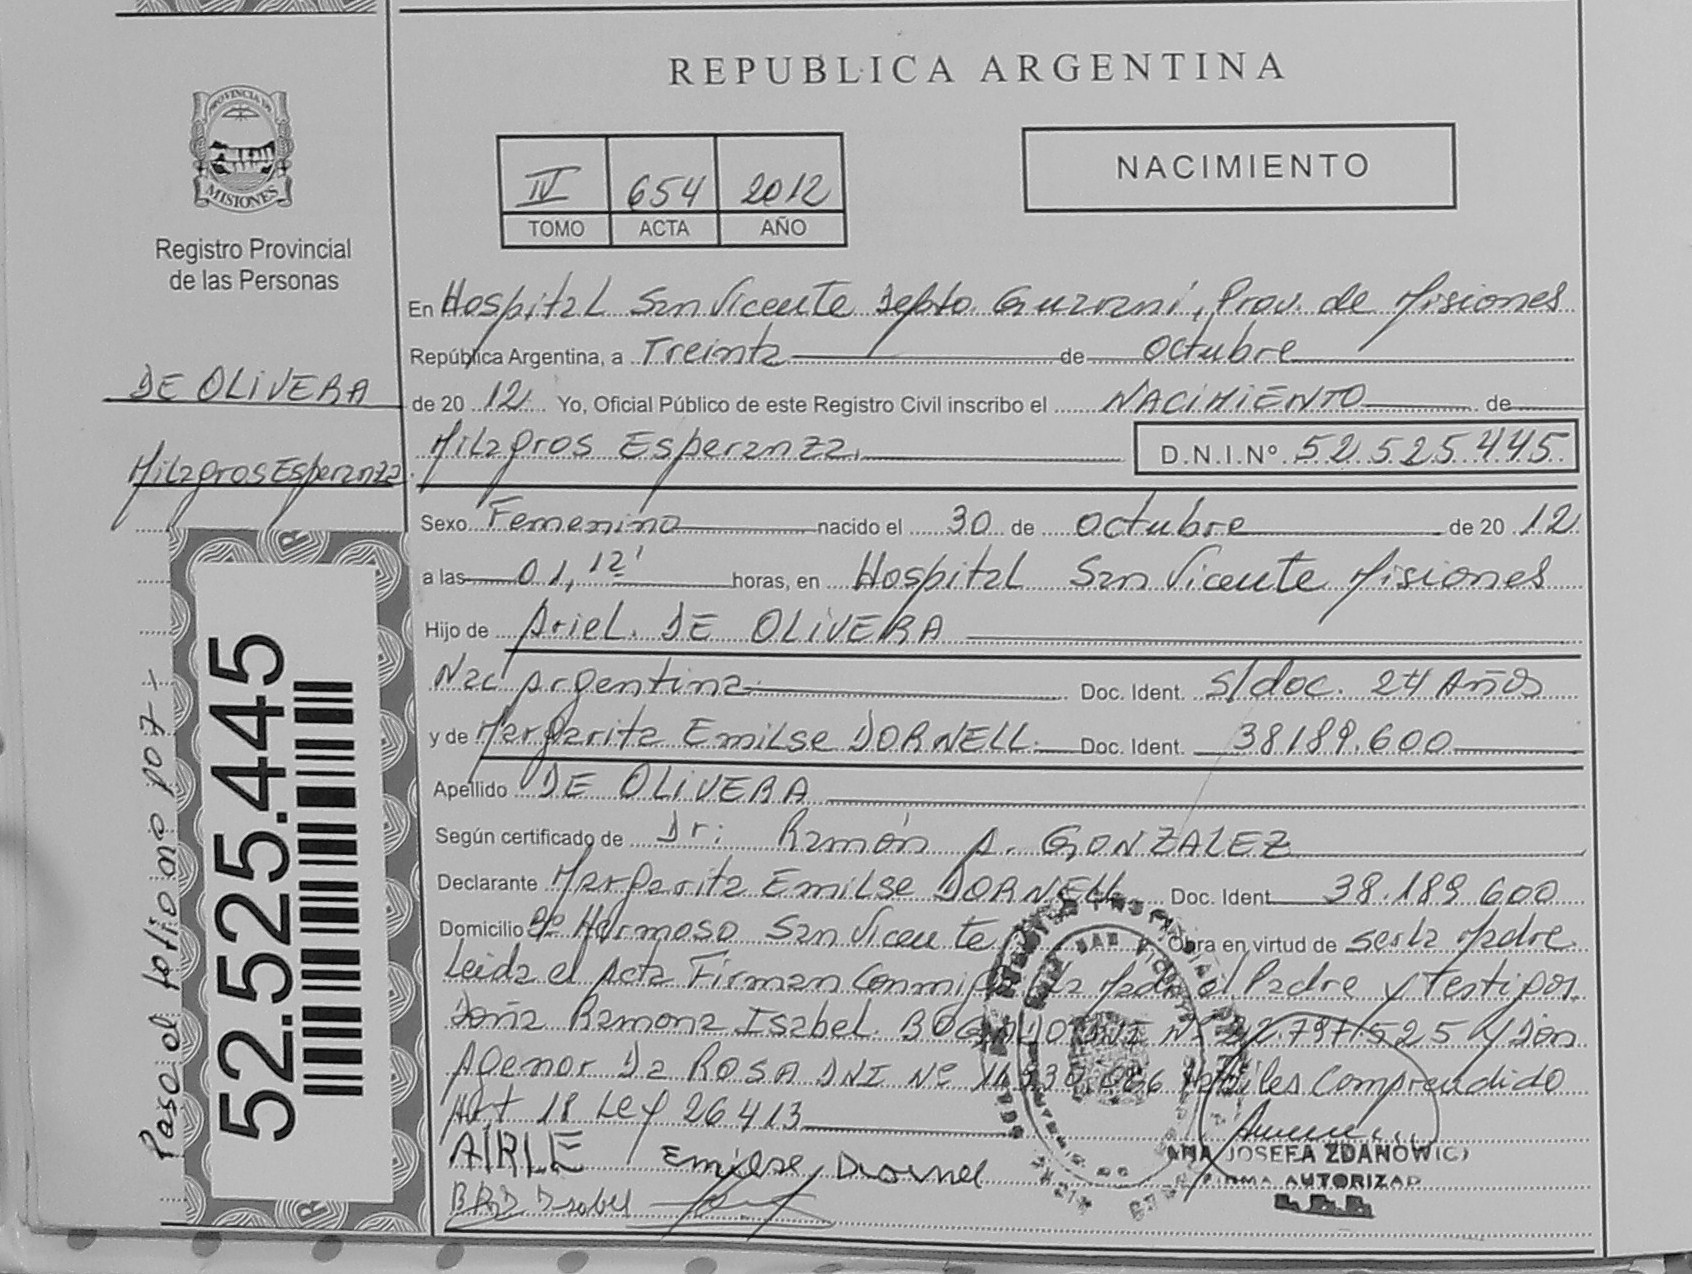 REPUBLICA ARGENTINA
PROVINCIA DE
MISIONES
Registro Provincial
de las Personas
IV 654 2012
TOMO ACTA AÑO
NACIMIENTO
DE OLIVERA
Milagros Esperanza
En Hospital San Vicente Depto. Guaraní, Prov. de Misiones
República Argentina, a Treinta de octubre
de 20 12 Yo, Oficial Público de este Registro Civil inscribo el NACIMIENTO de
Milagros Esperanza. D.N.I.Nº 52.525.445
Sexo Femenino nacido el 30 de octubre de 20 12
a las 01,12' horas, en Hospital San Vicente Misiones
Hijo de Ariel. DE OLIVERA
Nac Argentina Doc. Ident. s/doc. 24 Años
y de Margarita Emilse DORNELL. Doc. Ident. 38189.600
Apellido DE OLIVERA
Según certificado de Dr: Ramón A. GONZALEZ
Declarante Margarita Emilse DORNELL Doc. Ident. 38.189.600
Domicilio Aº Hermoso San Vicente Obra en virtud de ser la Madre.
Leida el Acta Firman Conmigo la Madre el Padre y Testigos.
Doña Ramona Isabel. BOGADO DNI Nº 797.525 y Don
Agenor Da ROSA DNI Nº Habiles Comprendido
Art 18 Ley 26413
AIRLE Emilse Dornel
Isabel
ANA JOSEFA ZDANOWICZ
FIRMA AUTORIZAD
52.525.445
Paso al folio nro 007